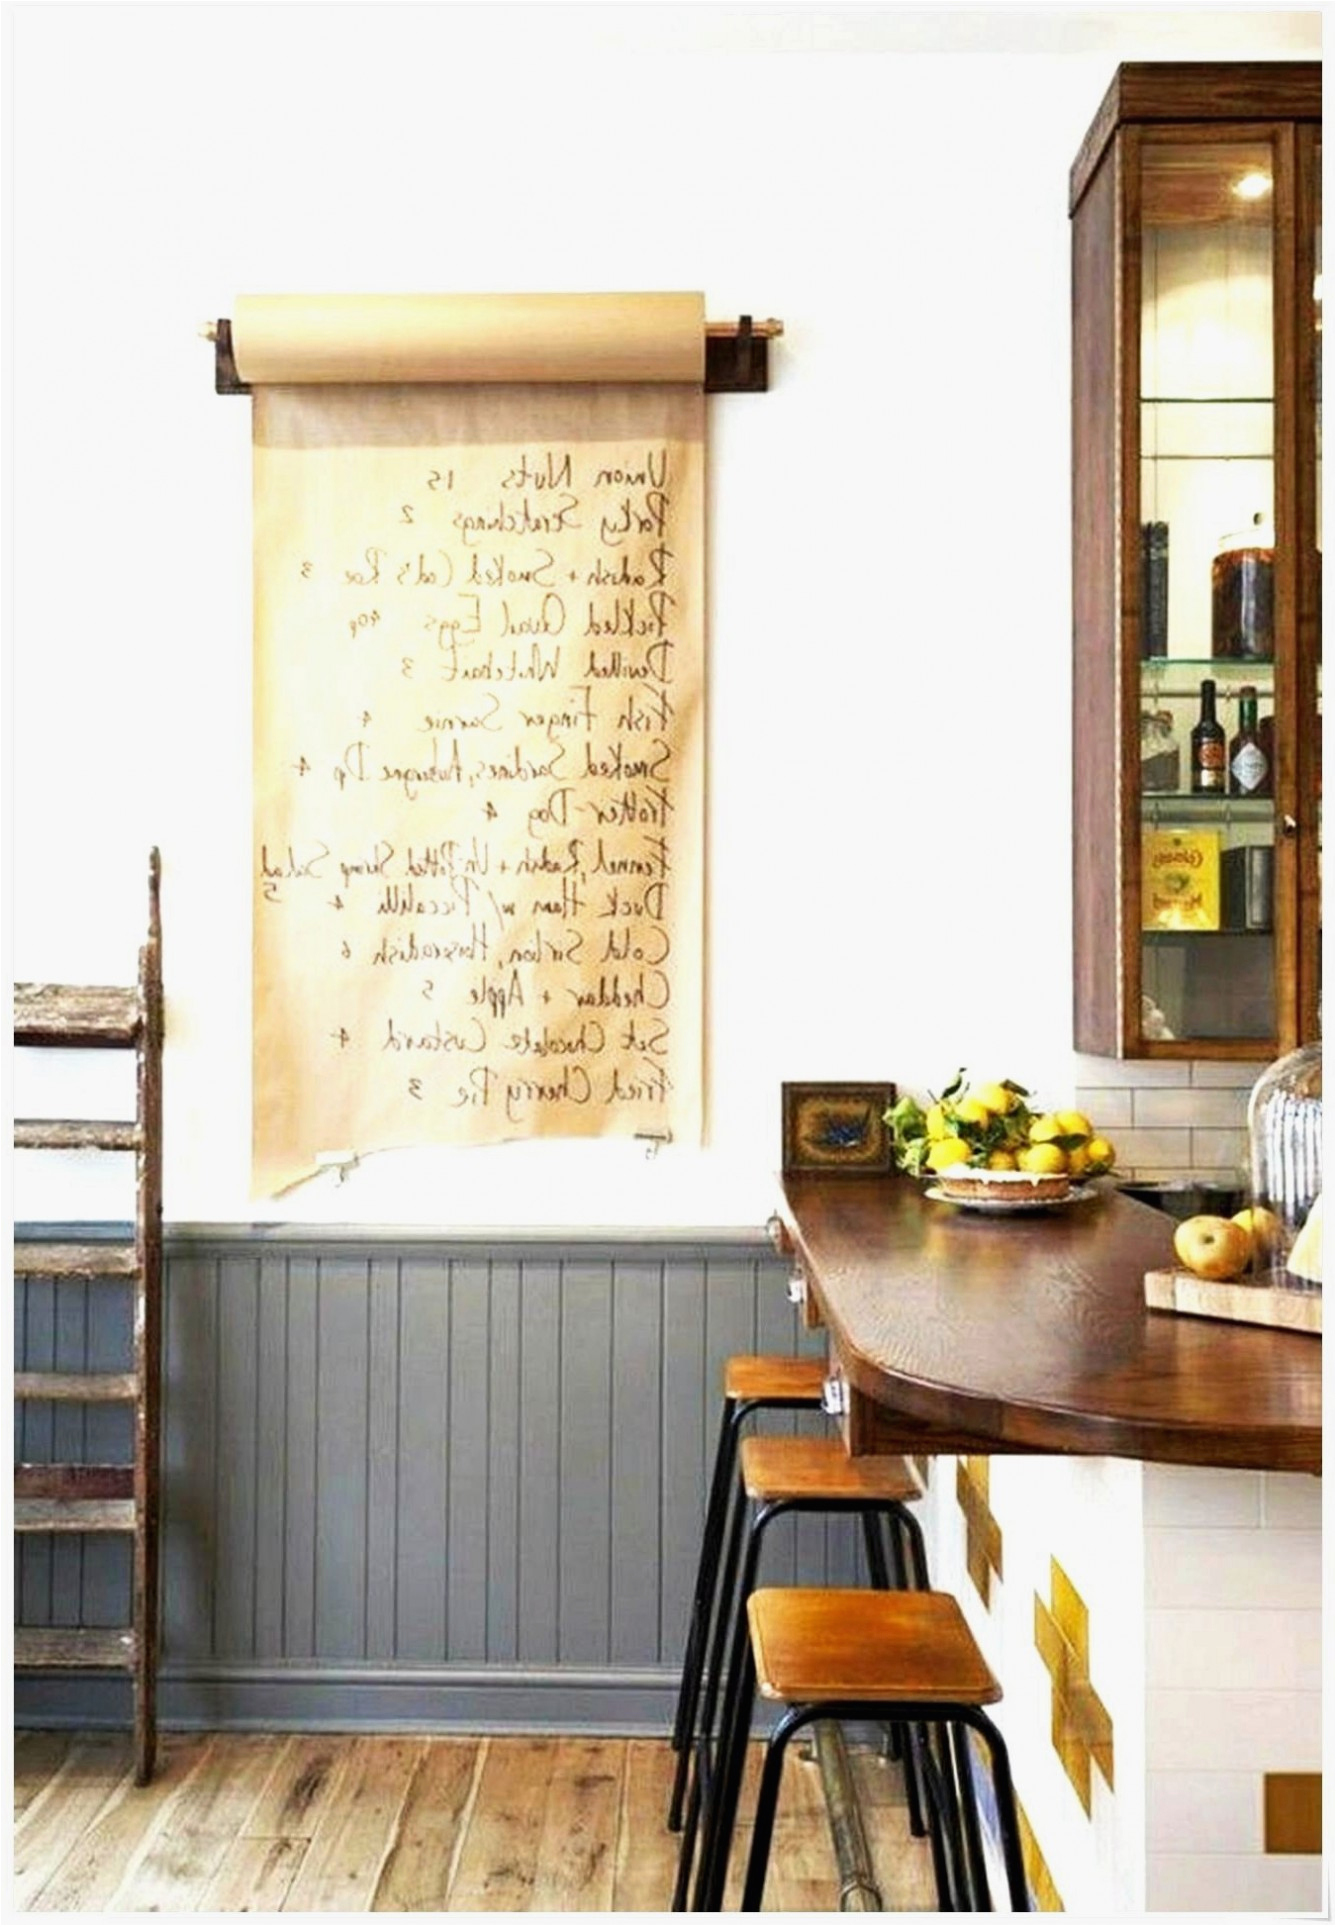 Union Nuts 1.5
Porky Scratchings 2
Radish + Smoked Cod's Roe 3
Pickled Quail Eggs 90p
Devilled Whitebait 3
Fish Finger Sarnie 4
Smoked Sardines, Aubergine Dip 4
Trotter Dog 4
Fennel, Radish + Un-Potted Shrimp Salad
5
Duck Ham w/ Piccalilli 4
Cold Sirloin, Horseradish 6
Cheddar + Apple 5
Set Chocolate Custard 4
Fried Cherry Pie 3
Colman's
Mustard